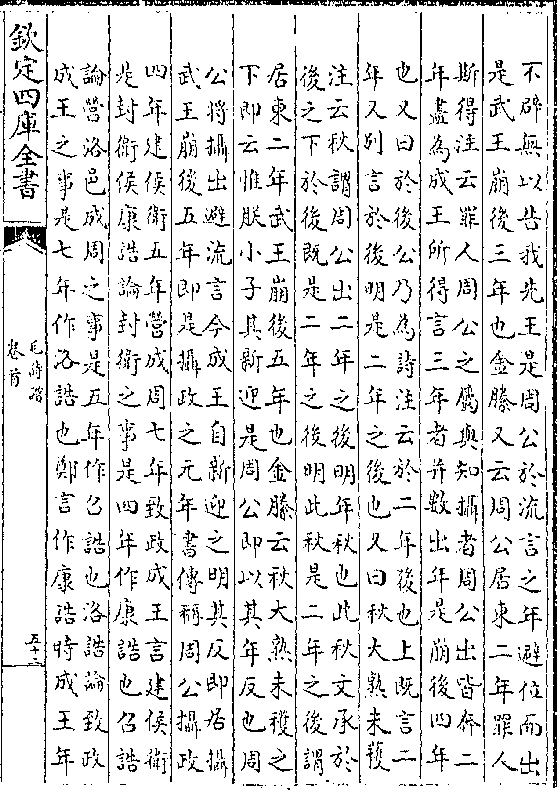 不辟無以告我先王是周公於流言之年避位而出
是武王崩後三年也金縢又云周公居東二年罪人
斯得注云罪人周公之屬與知攝者周公出皆奔二
年盡為成王所得言三年者并數出年是崩後四年
也又曰於後公乃為詩注云於二年後也上既言二
年又別言於後明是二年之後也又曰秋大熟未穫
注云秋謂周公出二年之後明年秋也此秋文承於
後之下於後既是二年之後明此秋是二年之後謂
居東二年武王崩後五年也金縢云秋大熟未穫之
下即云惟朕小子其新迎是周公即以其年反也周
公將攝出避流言今成王自新迎之明其反即居攝
武王崩後五年即是攝政之元年書傳稱周公攝政
四年建侯衛五年營成周七年致政成王言建侯衛
是封衛侯康誥論封衛之事是四年作康誥也召誥
論營洛邑成周之事是五年作召誥也洛誥論致政
成王之事是七年作洛誥也鄭言作康誥時成王年
欽定四庫全書
毛詩譜
卷首
五十二